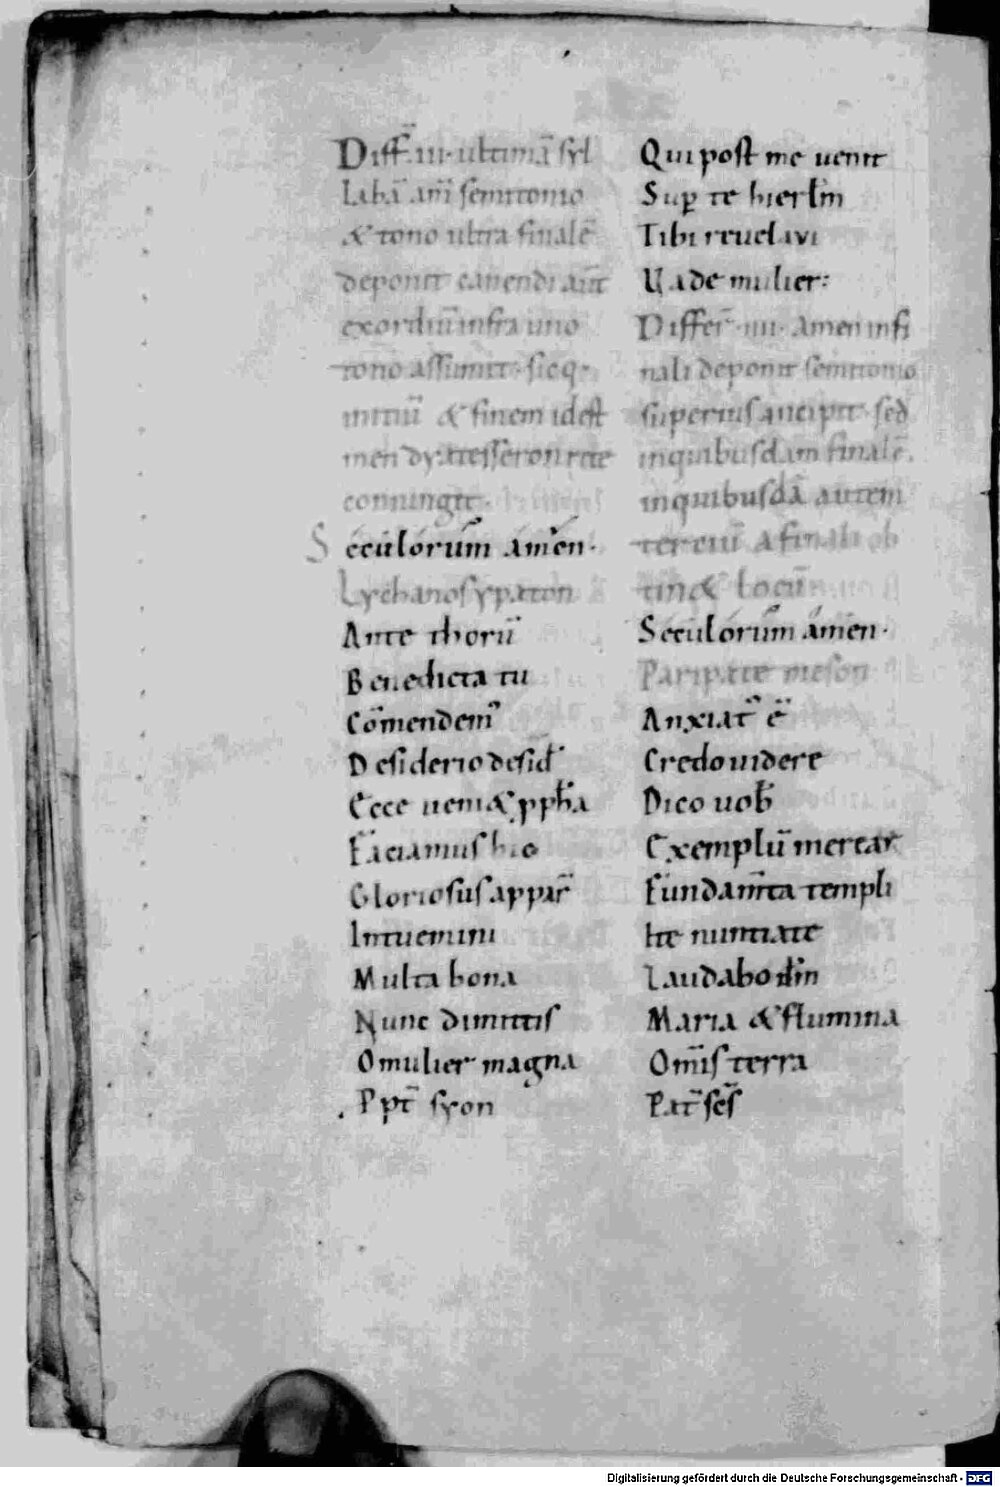 Diffe͞r·iii·ultima͞ syl
laba͞ am̅ semitonio
& tono ultra finale͞
deponit canendi aut͞
exordiu͞ infra uno
tono assumit·sicq·
initiu͞ & finem idest
men dyatesseron rite
coniungit·
Seculorum amen·
Lychanos ypaton
Ante thoru͞
Benedicta tu
Co͞mendem᾽
Desiderio desid͞
Ecce ueni& pph̅a
Faciamus hic
Gloriosus appar͞
Intuemini
Multa bona
Nunc dimittis
O mulier magna
Ppt͞ syon
Qui post me uenit
Sup te hierl̅m
Tibi reuelavi
Uade mulier:
Differ͞·iiii·Amen infi
nali deponit semitonio
superius ancipit·sed
inquibusdam finale͞.
inquibusda͞ autem
terciu͞ a finali ob
tin& locu͞
Seculorum amen·
Paripate meson
Anxiat᾽ e͞
Credo uidere
Dico uob̅
Exemplu͞ mercat᾽
Fundam͞ta templi
Ite nuntiate
Laudabo d͞m
Maria & flumina
Om͞is terra
Pat͞ sc͞s
Digitalisierung gefördert durch die Deutsche Forschungsgemeinschaft - DFG